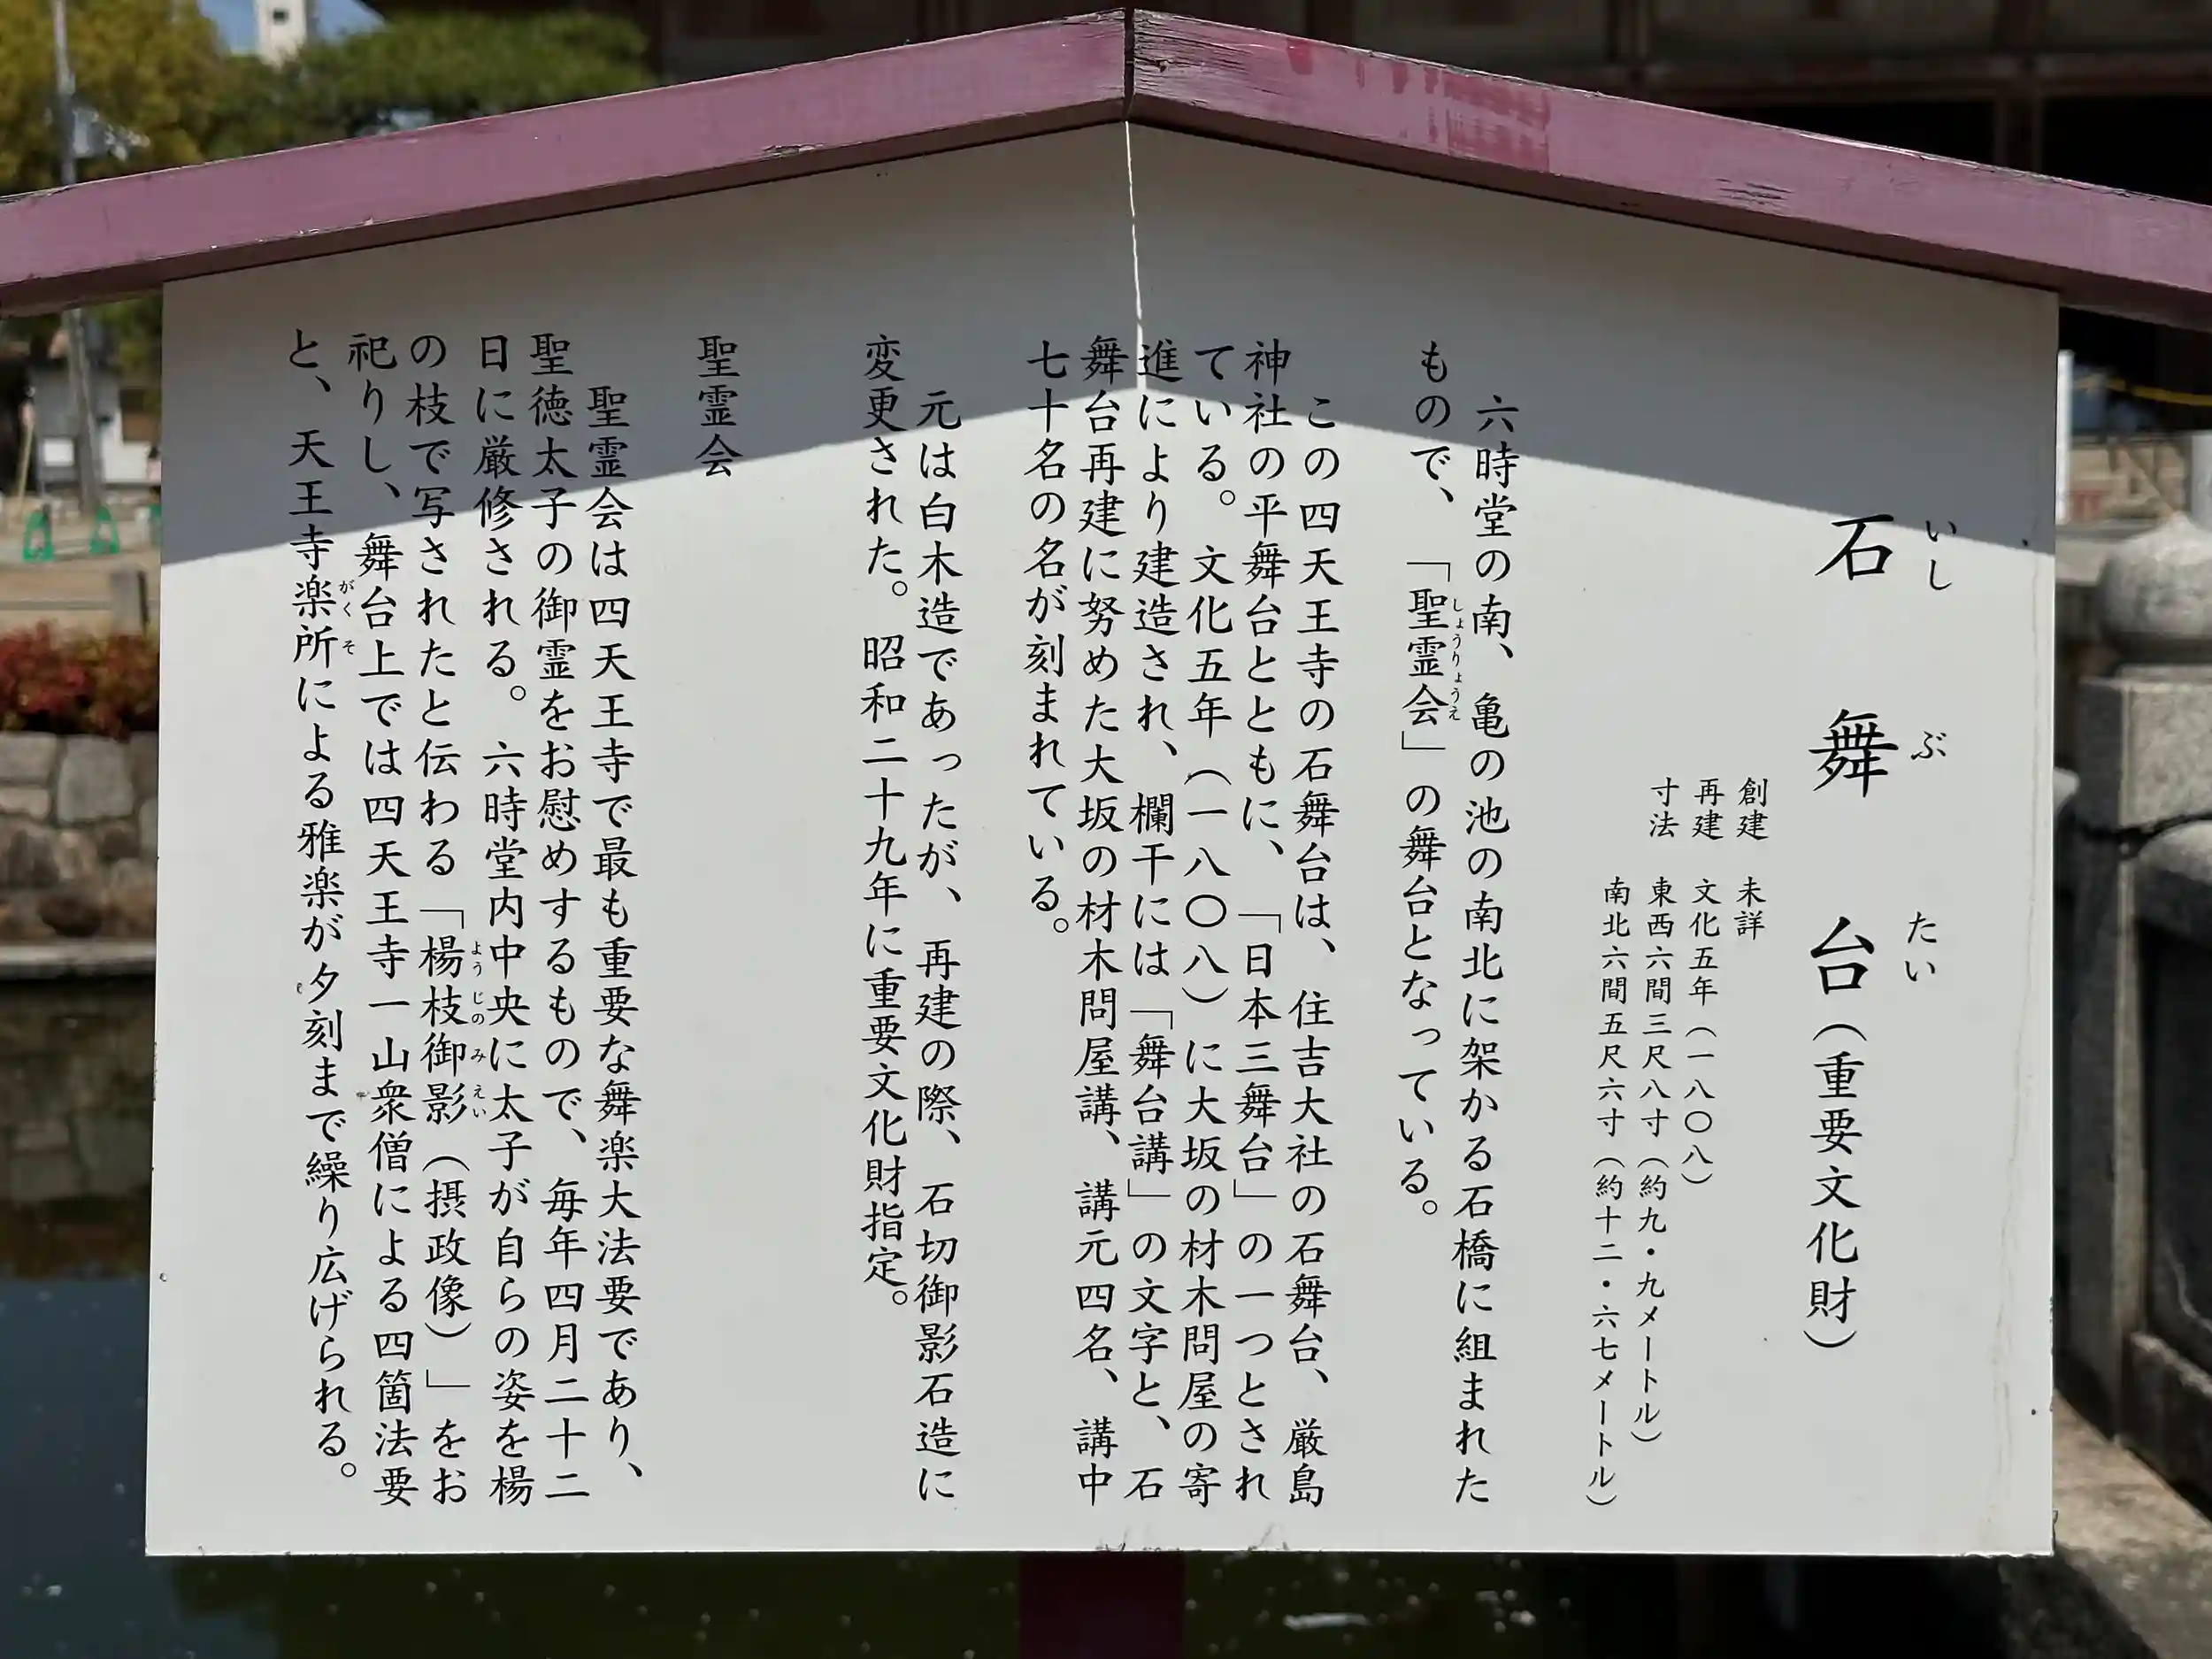 石舞台（重要文化財）
いしぶたい
創建　未詳
再建　文化五年（一八〇八）
寸法　東西六間三尺八寸（約九・九メートル）
南北六間五尺六寸（約十二・六七メートル）
六時堂の南、亀の池の南北に架かる石橋に組まれた
もので、「聖霊会」の舞台となっている。
しょうりょうえ
この四天王寺の石舞台は、住吉大社の石舞台、厳島
神社の平舞台とともに、「日本三舞台」の一つとされ
ている。文化五年（一八〇八）に大坂の材木問屋の寄
進により建造され、欄干には「舞台講」の文字と、石
舞台再建に努めた大坂の材木問屋講、講元四名、講中
七十名の名が刻まれている。
元は白木造であったが、再建の際、石切御影石造に
変更された。昭和二十九年に重要文化財指定。
聖霊会
聖霊会は四天王寺で最も重要な舞楽大法要であり、
聖徳太子の御霊をお慰めするもので、毎年四月二十二
日に厳修される。六時堂内中央に太子が自らの姿を楊
の枝で写されたと伝わる「楊枝御影（摂政像）」をお
ようじのみえい
祀りし、舞台上では四天王寺一山衆僧による四箇法要
と、天王寺楽所による雅楽が夕刻まで繰り広げられる。
がくそ